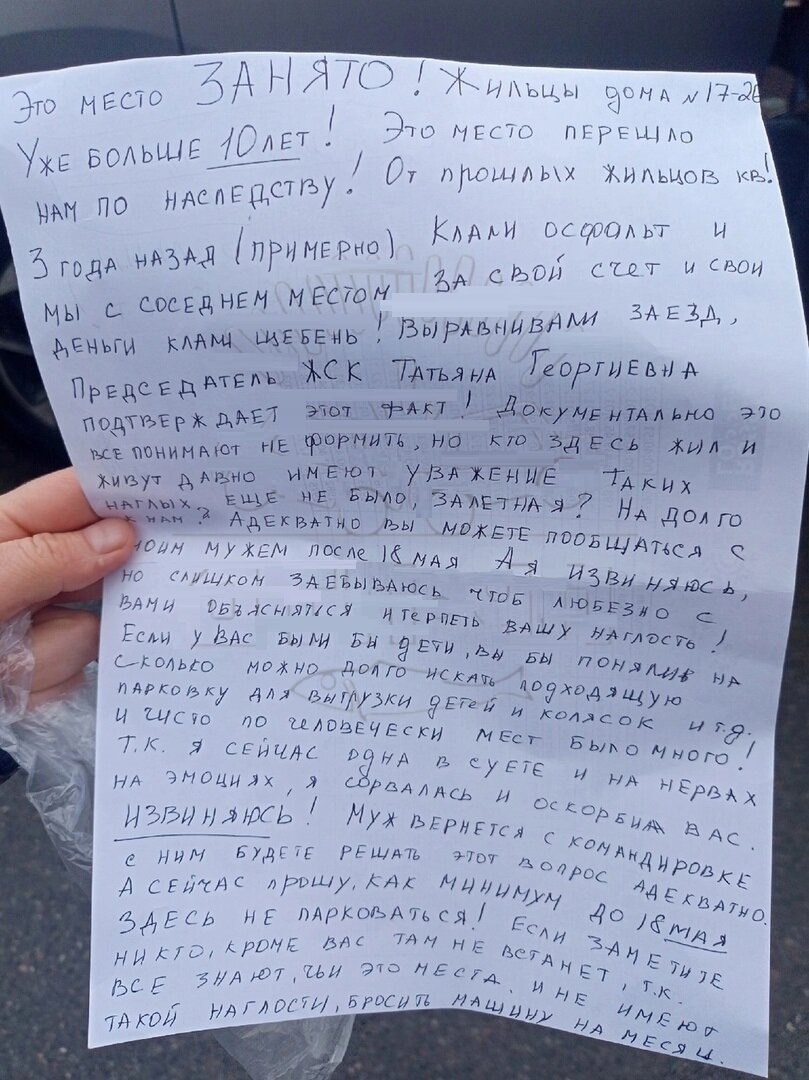 Это место ЗАНЯТО! Жильцы дома №17-26
Уже больше 10 лет! Это место перешло
нам по наследству! От прошлых жильцов кв!
3 года назад (примерно) Клали осфальт и
мы с соседнем местом за свой счет и свои
деньги клали щебень! Выравнивали заезд,
Председатель ЖСК Татьяна Георгиевна
подтверждает этот факт! Документально это
все понимают не формить, но кто здесь жил и
живут давно имеют уважение таких
наглых еще не было, залетная? На долго
к нам? Адекватно вы можете пообщаться с
моим мужем после 18 мая А я извиняюсь,
но слишком заебываюсь чтоб любезно с
вами объясняться и терпеть вашу наглость!
Если у вас были бы дети, вы бы поняли на
сколько можно долго искать подходящую
парковку для выгрузки детей и колясок и т.д.
и чисто по человечески мест было много!
Т.к. я сейчас одна в суете и на нервах
на эмоциях, я сорвалась и оскорбила вас.
ИЗВИНЯЮСЬ! Муж вернется с командировке
с ним будете решать этот вопрос адекватно.
А сейчас прошу, как минимум до 18 мая
здесь не парковаться! Если заметите
никто, кроме вас там не встанет, т.к.
все знают, чьи это места. и не имеют
такой наглости, бросить машину на месяц.